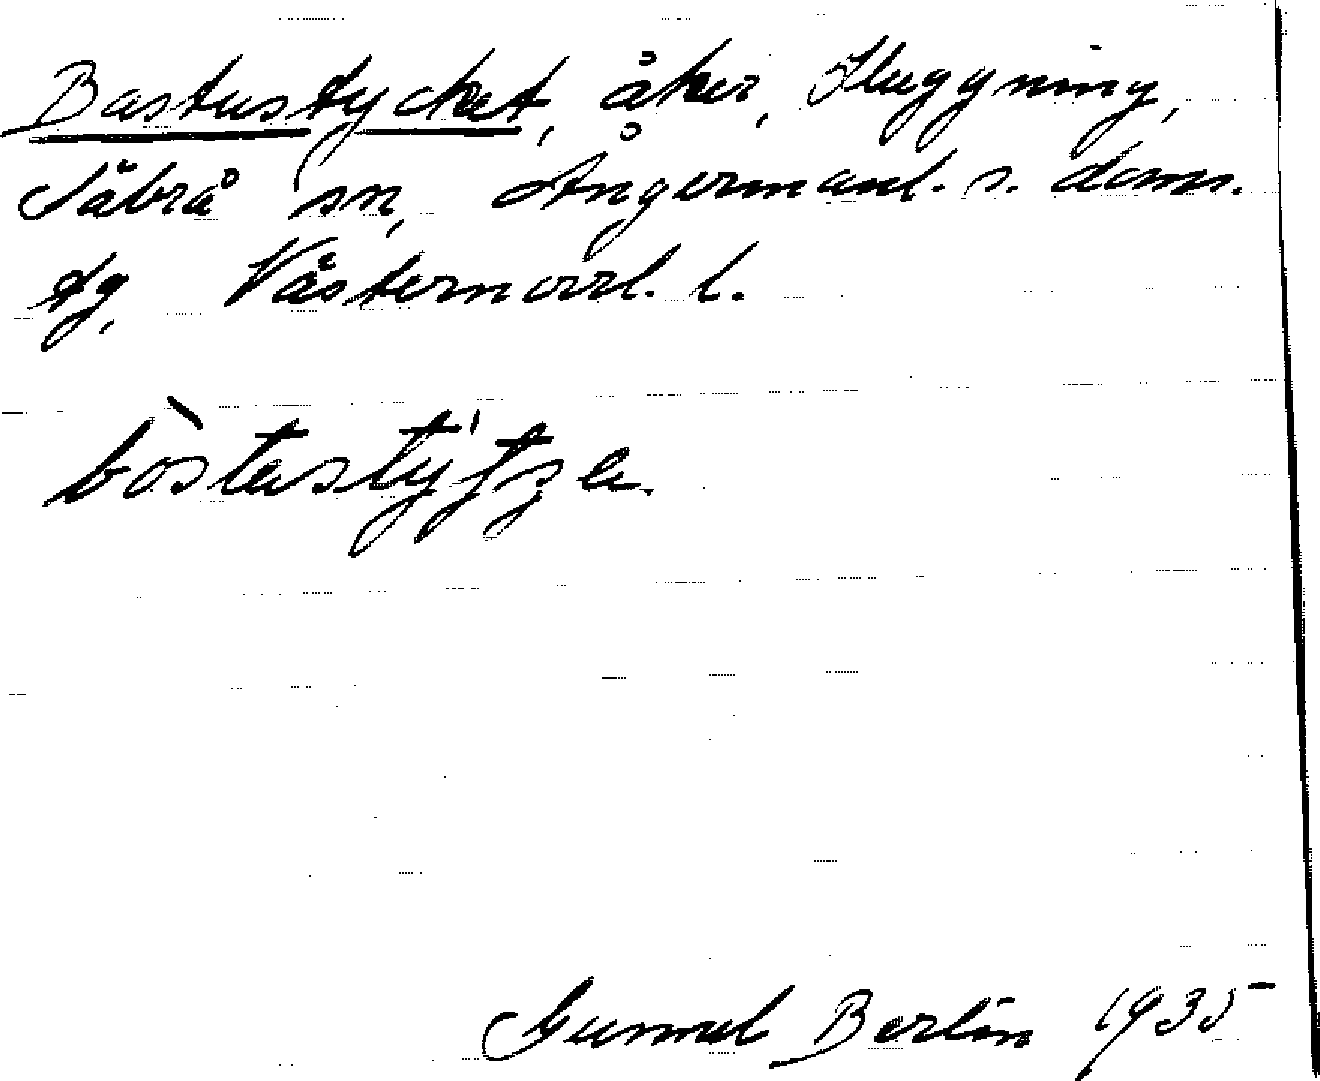 Bastustycket, åker, Huggning,
Säbrå sn, Ångermanl. s. doms.
tg, Västernorrl. l.
bòstastýtʃɛ
Gunnel Berlin 1935